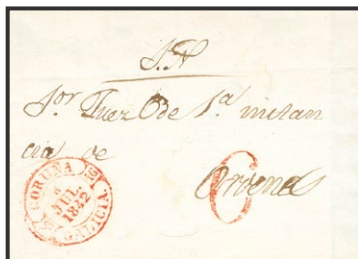 S. N.
Sor. Juez Ode 1.ª instan
cia de
Ordenes
CORUÑA
8
JUL.
1842
GALICIA.